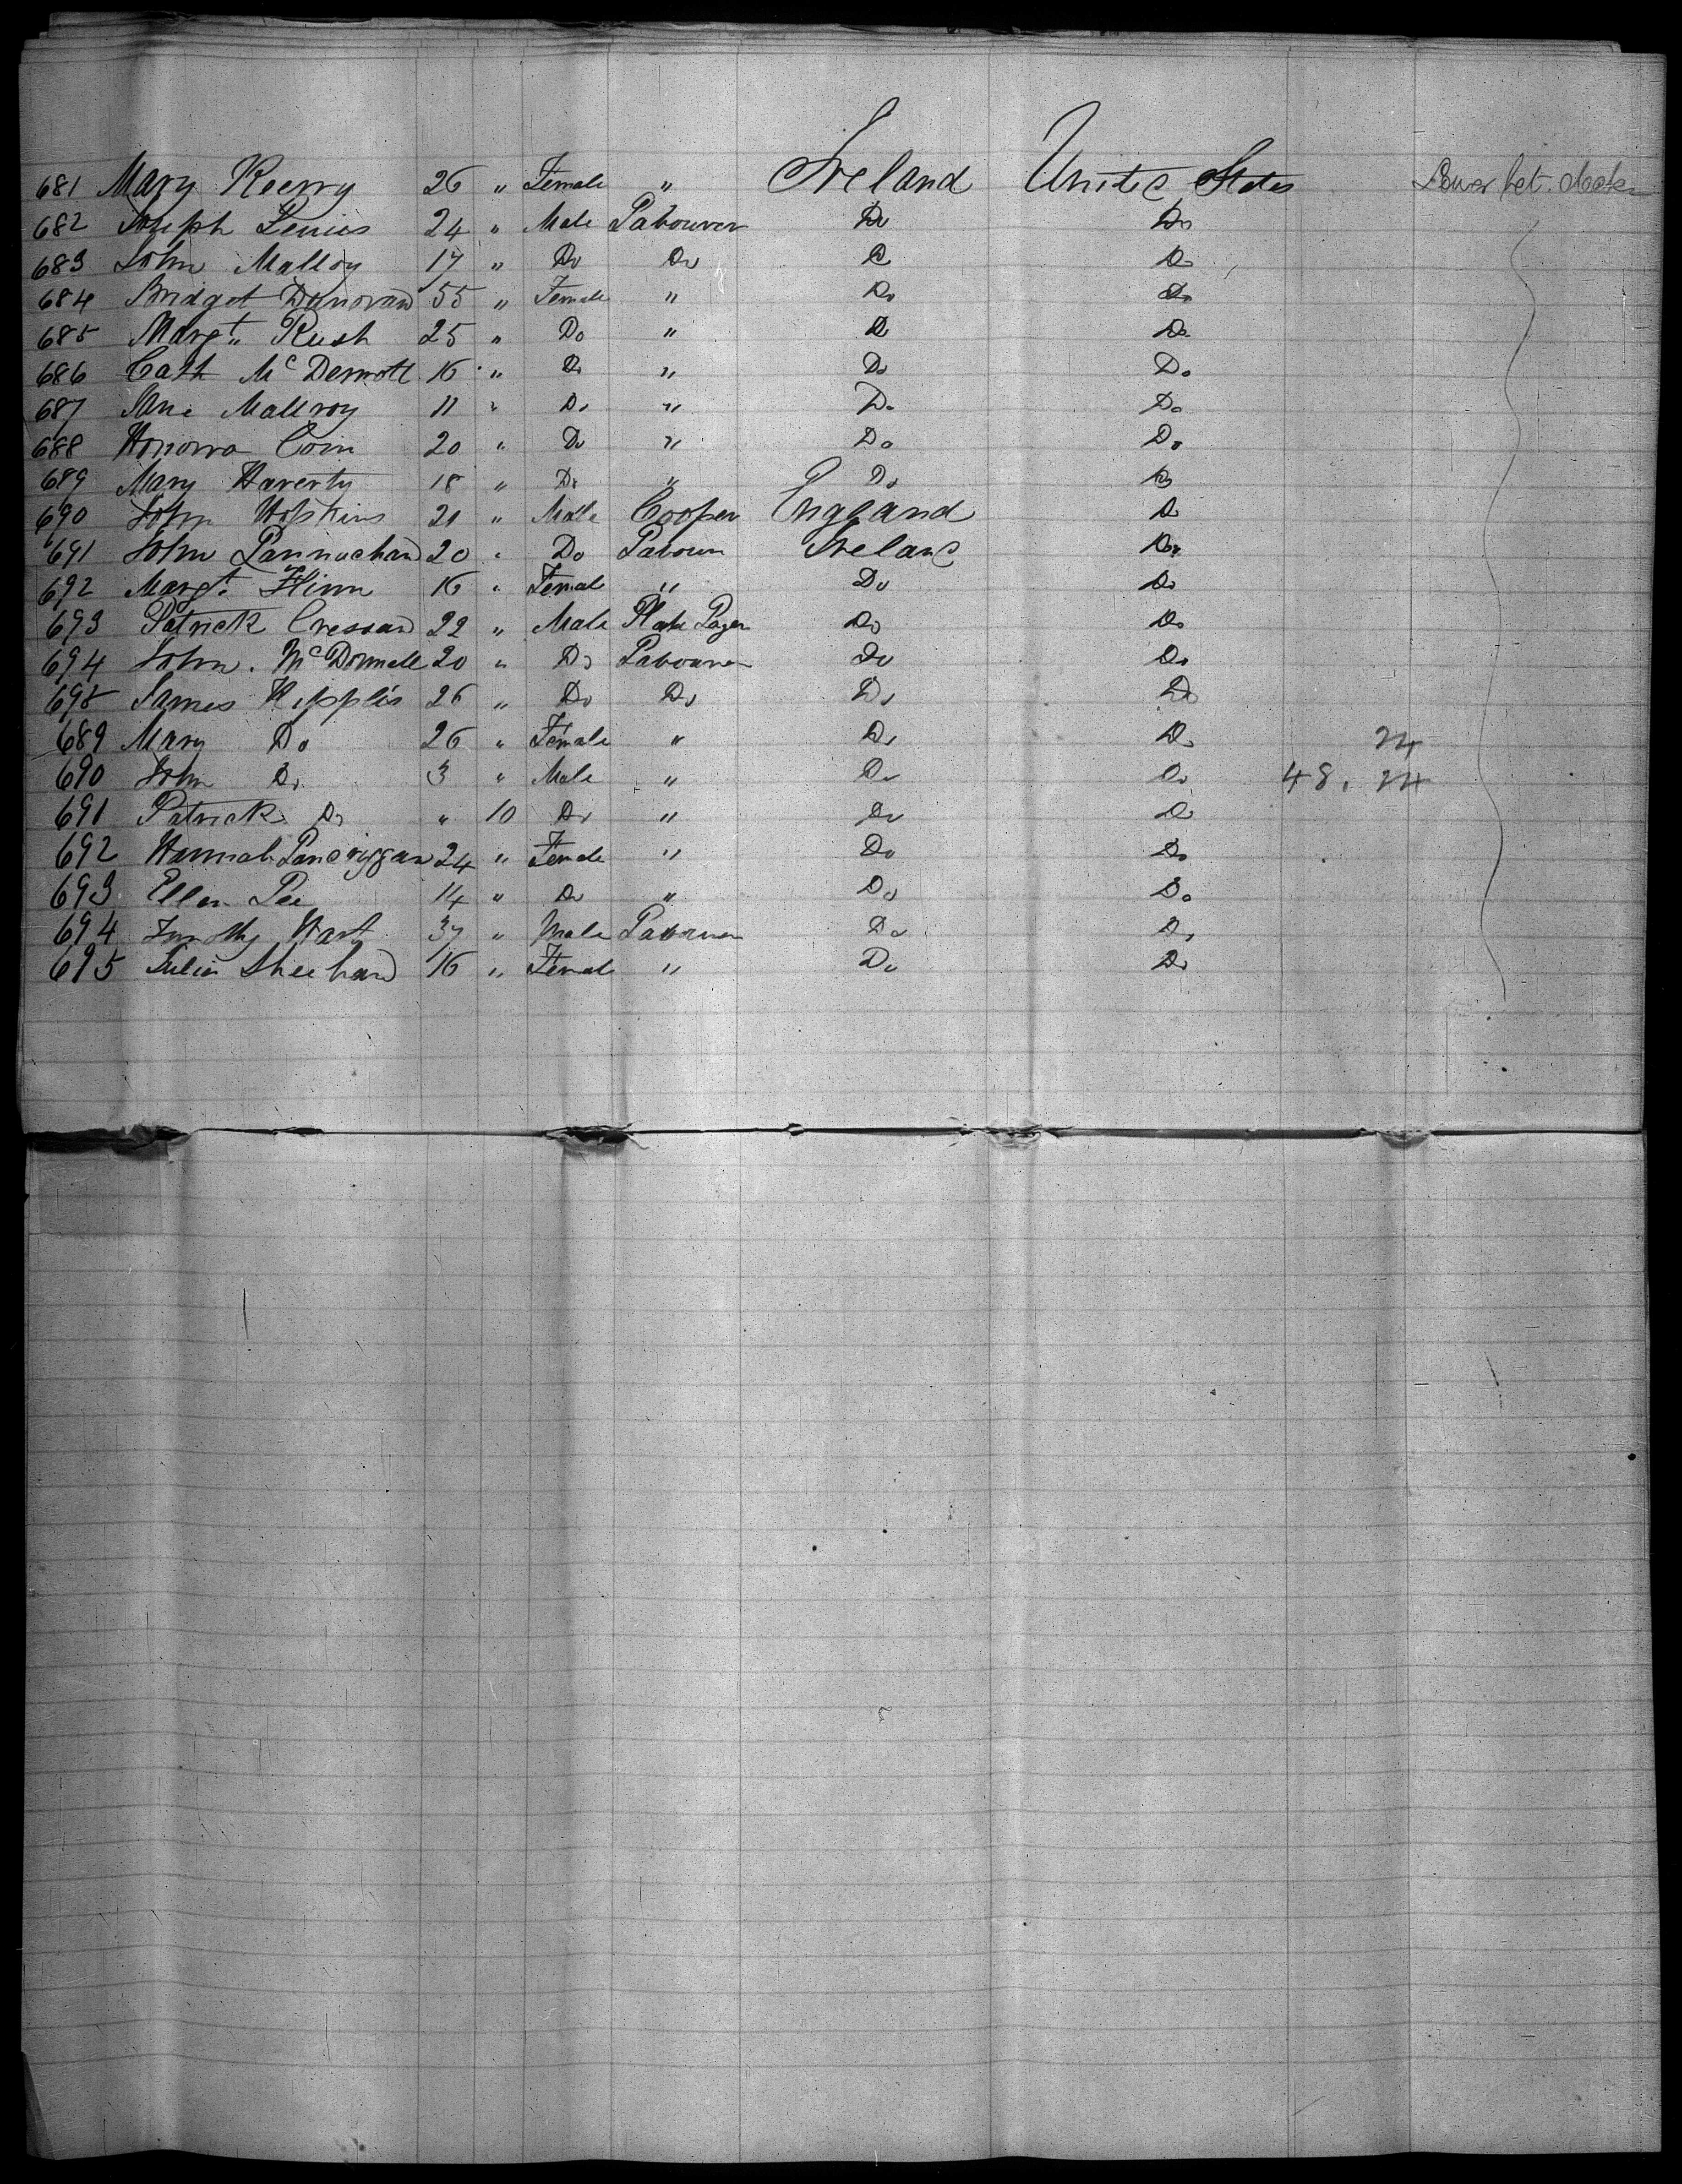 681 Mary Keerry 26 " Female " Ireland United States Lower bet. Decks
682 Joseph Lenius 24 " Male Labourer Do Do
683 John Malloy 17 " Do Do Do Do
684 Bridget Donovan 55 " Female " Do Do
685 Margt. Rush 25 " Do " Do Do
686 Cath McDermott 16 " Do " Do Do
687 Jane Mallroy 11 " Do " Do Do
688 Honora Coin 20 " Do " Do Do
689 Mary Haverty 18 " Do " Do Do
690 John Hopkins 21 " Male Cooper England Do
691 John Lannachan 20 " Do Labour Ireland Do
692 Margt. Flinn 16 " Female " Do Do
693 Patrick Cressan 22 " Male Plate Layer Do Do
694 John McDonnell 20 " Do Labourer Do Do
695 James Hipplis 26 " Do Do Do Do
689 Mary Do 26 " Female " Do Do 24
690 John Do 3 " Male " Do Do 48. 24
691 Patrick Do " 10 Do " Do Do
692 Hannah Landriggan 24 " Female " Do Do
693 Ellen Lee 14 " Do " Do Do
694 Timothy Hart 37 " Male Labourer Do Do
695 Julia Sheehan 16 " Female " Do Do